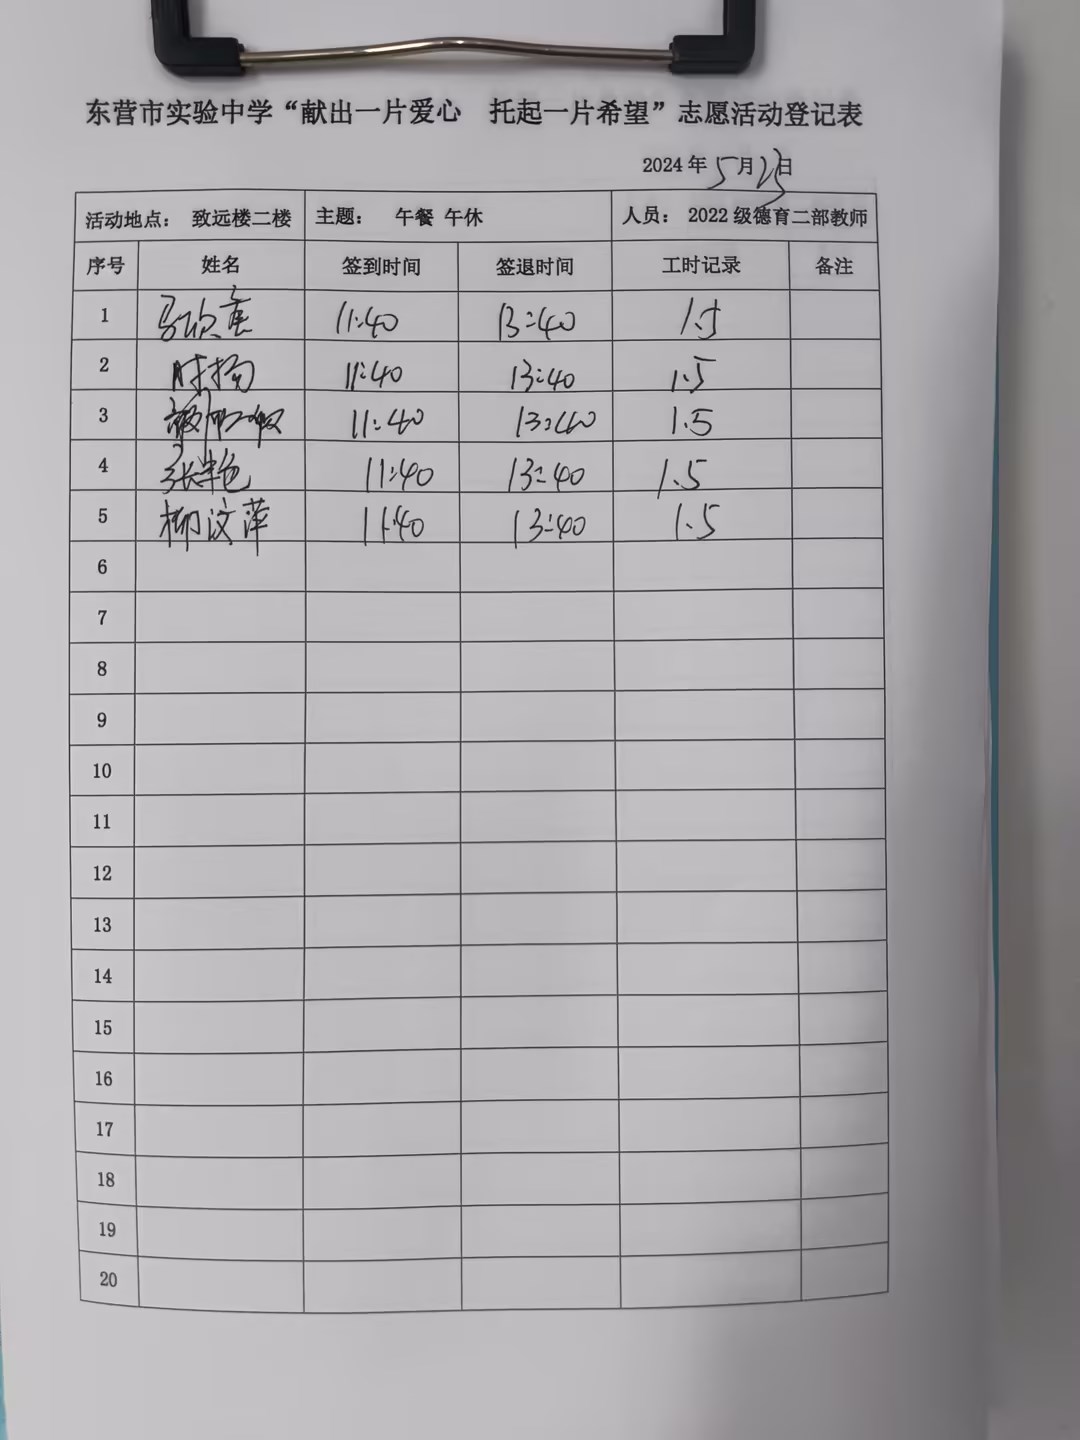 东营市实验中学“献出一片爱心 托起一片希望”志愿活动登记表
2024年5月23日
活动地点： 致远楼二楼 主题： 午餐 午休 人员： 2022级德育二部教师
序号 姓名 签到时间 签退时间 工时记录 备注
1 马欣 11:40 13:40 1.5
2 时扬 11:40 13:40 1.5
3 11:40 13:40 1.5
4 张 11:40 13:40 1.5
5 柳汶萍 11:40 13:40 1.5
6
7
8
9
10
11
12
13
14
15
16
17
18
19
20